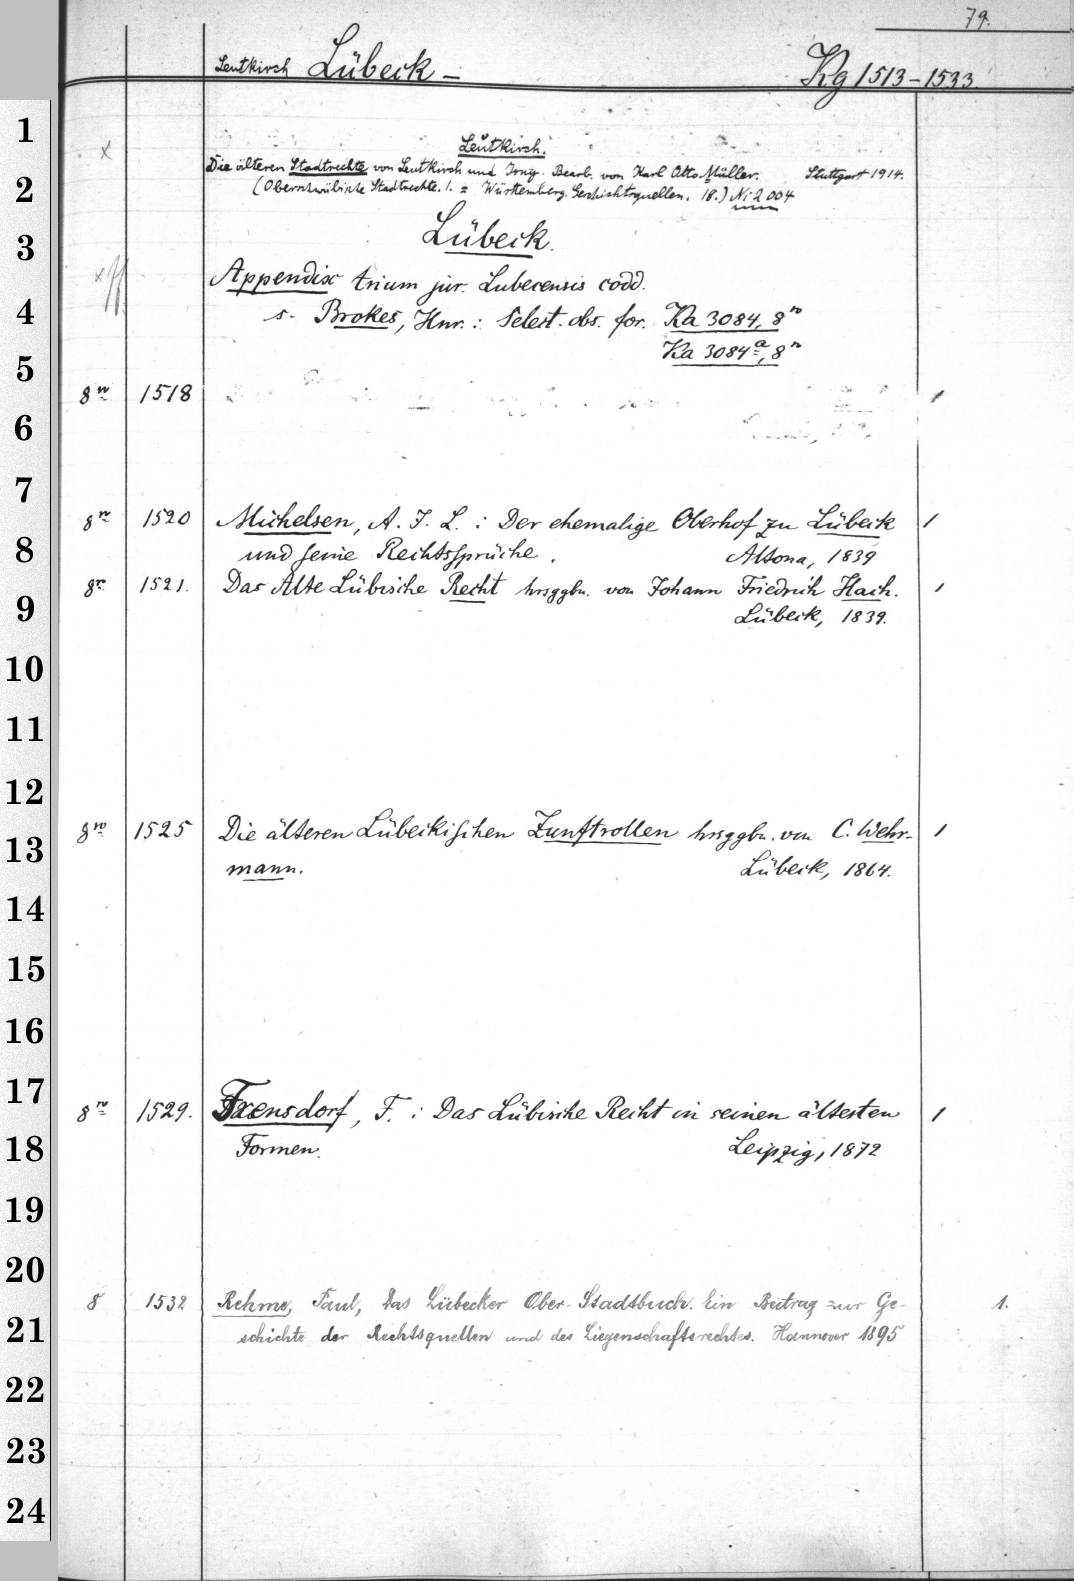 79.
Leutkirch Lübeck – Kg 1513–1533.
1
x Leutkirch.
Die älteren Stadtrechte von Leutkirch und Isny. Bearb. von Karl Otto Müller. Stuttgart 1914.
2 (Oberschwäbische Stadtrechte. 1. = Württemberg. Geschichtsquellen. 18.) Ni 2004
3 Lübeck.
x Appendix trium jur. Lubecensis codd.
4 s. Brokes, Hnr.: Select. obs. for. Ka 3084, 8º
5 Ka 3084a, 8º
8vo 1518 1
6
7
8vo 1520 Michelsen, A. J. L.: Der ehemalige Oberhof zu Lübeck 1
8 und seine Rechtssprüche. Altona, 1839
8vo 1521. Das Alte Lübische Recht hrsggbn. von Johann Friedrich Hach. 1
9 Lübeck, 1839.
10
11
12
8vo 1525 Die älteren Lübeckischen Zunftrollen hrsggbn. von C. Wehr- 1
13 mann. Lübeck, 1864.
14
15
16
17
8vo 1529. Frensdorf, F.: Das Lübische Recht in seinen ältesten 1
18 Formen. Leipzig, 1872
19
20
8 1532 Rehme, Paul, Das Lübecker Ober-Stadtbuch. Ein Beitrag zur Ge- 1.
21 schichte der Rechtsquellen und des Liegenschaftsrechtes. Hannover 1895
22
23
24